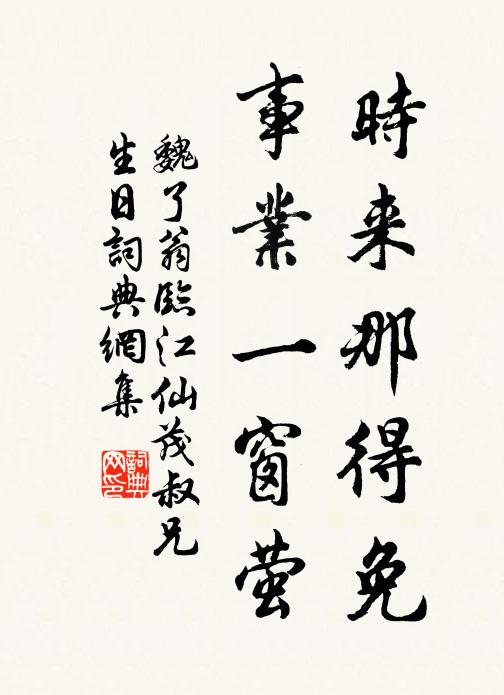 時来那得免
事業一窗萤
魏了翁臨江仙茂叔兄
生日詞典網集
詞典
网印